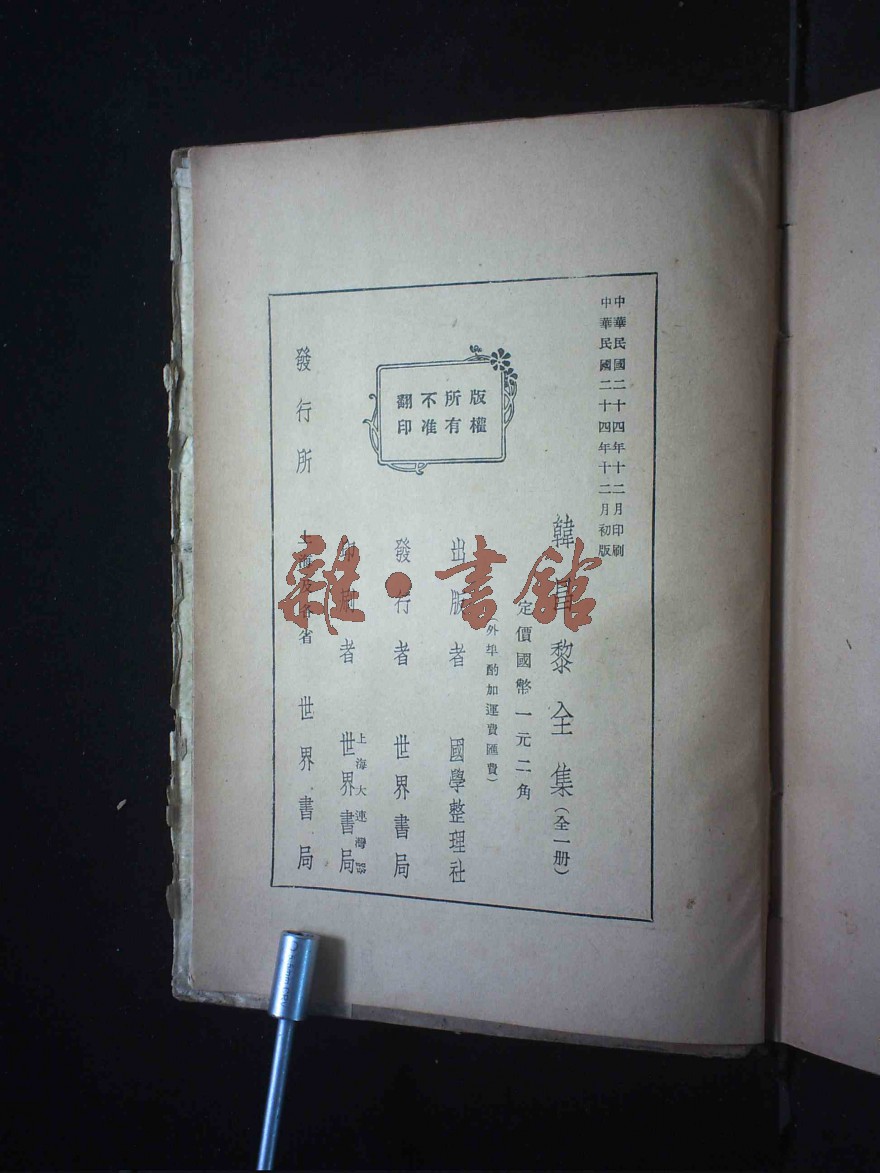 中華民國二十四年十二月印刷
中華民國二十四年十二月初版
韓昌黎全集(全一册)
定價國幣一元二角
(外埠酌加運費匯費)
版權
所有
不准
翻印
出版者 國學整理社
發行者 世界書局
印刷者 上海大連灣路 世界書局
發行所 上海及各省 世界書局
雜·書館